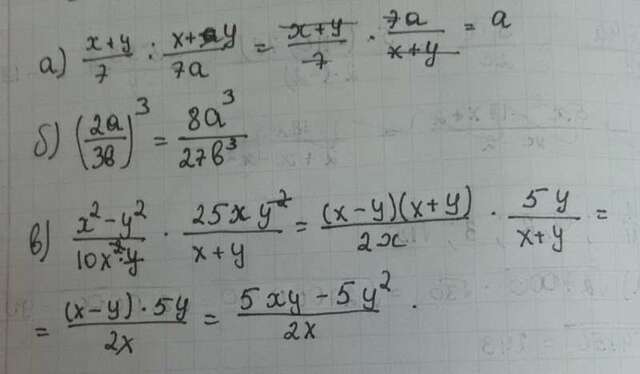 а) (x+y)/7 : (x+y)/7a = (x+y)/7 · 7a/(x+y) = a
б) (2a/3b)³ = 8a³/27b³
в) (x²-y²)/(10x²·y) · 25xy²/(x+y) = (x-y)(x+y)/2x · 5y/(x+y) =
= (x-y)·5y/2x = (5xy-5y²)/2x .